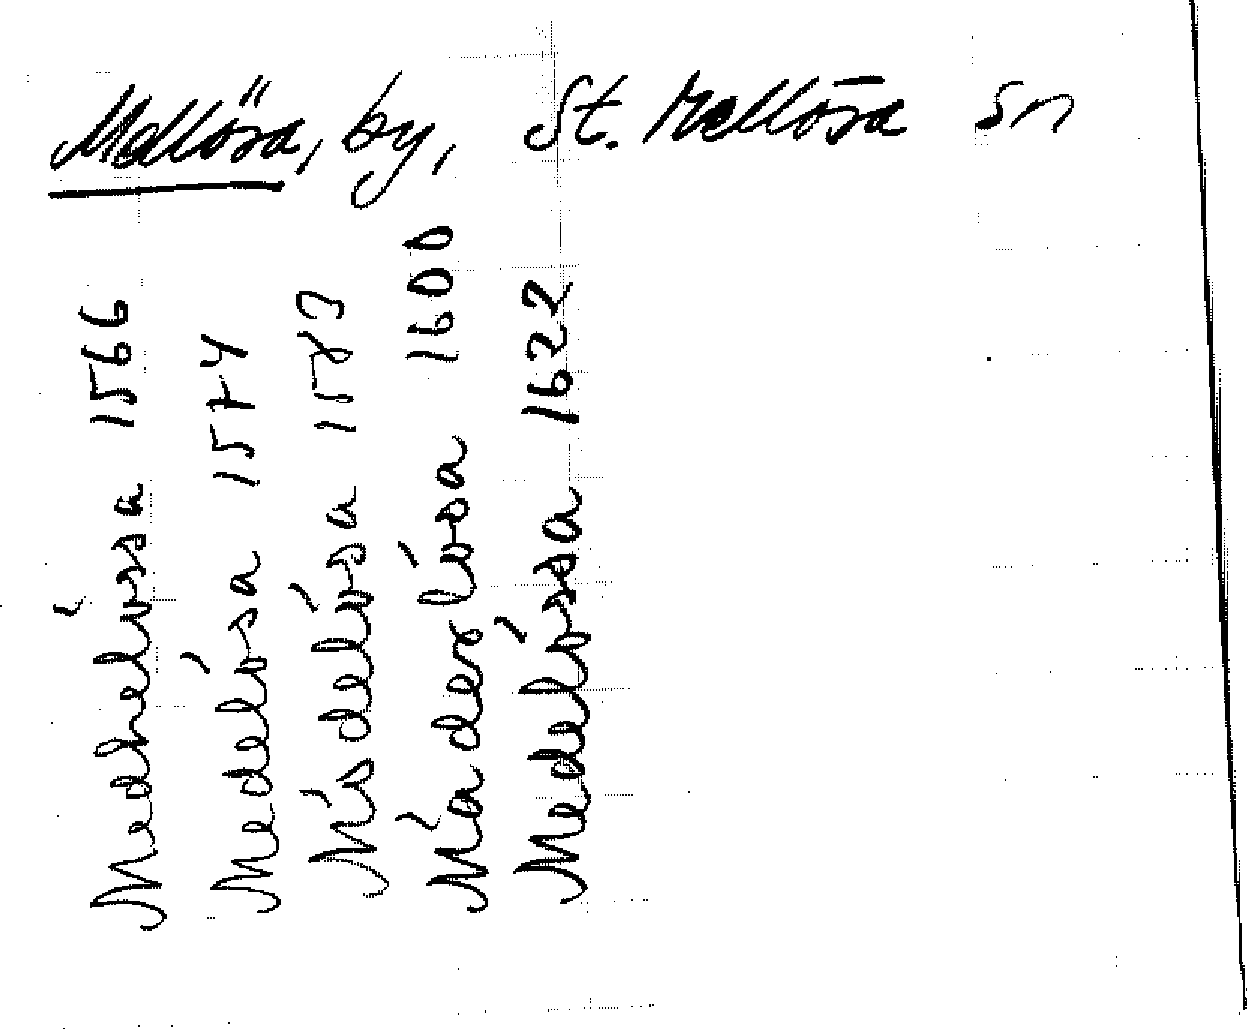 Mellösa, by, St. Mellösa sn
Medhelösa 1566
Medelösa 1574
Mädelösa 1583
Mäder lösa 1600
Medelössa 1622